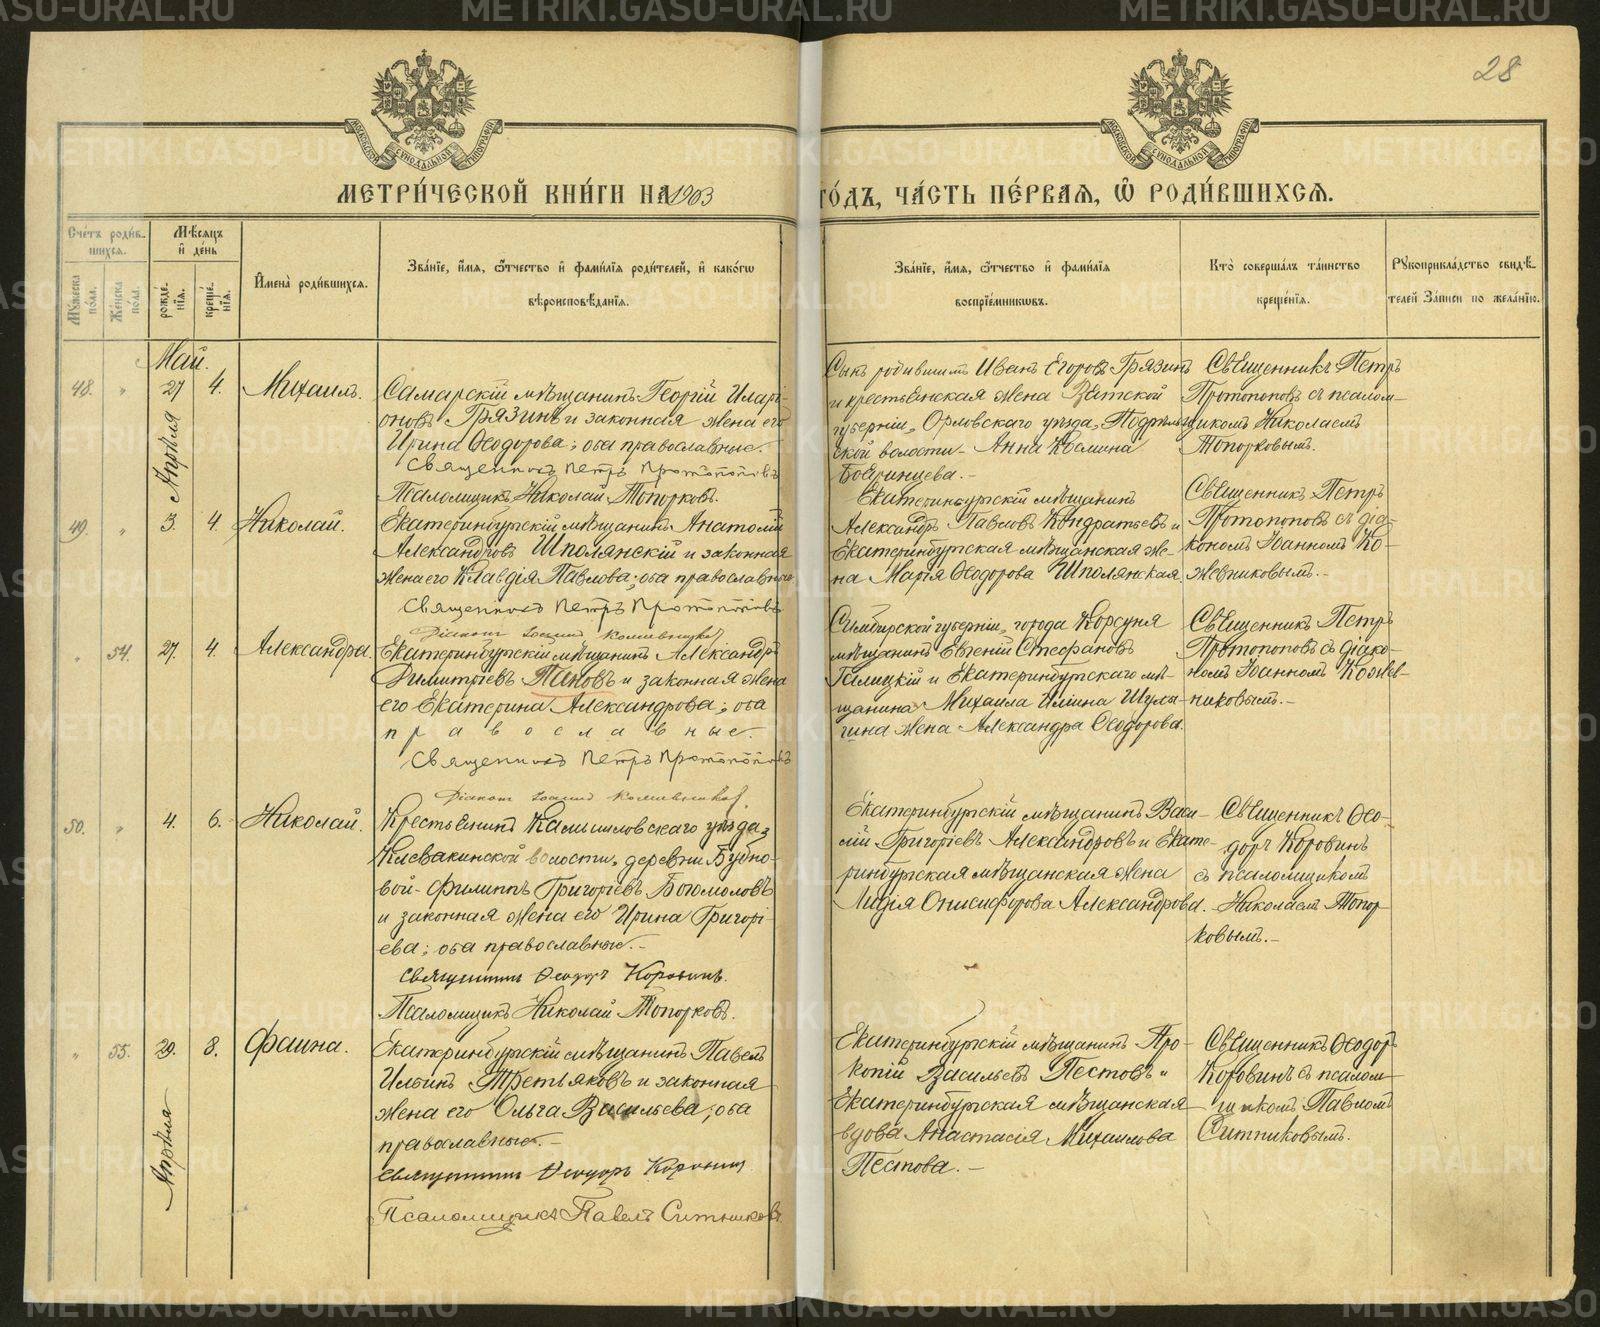 28
МЕТРИ́ЧЕСКОЙ КНИ́ГИ НА 1903 ГО́ДЪ, ЧА́СТЬ ПЕ́РВАЯ, Ѡ РОДИ́ВШИХСЯ.
Сче́тъ роди́в-
шихся.
Му́жеска по́ла.
Же́нска по́ла.
Мѣсяцъ и де́нь
рожде́-
нія.
креще́-
нія.
Имена̀ роди́вшихся.
Зва́ніе, и́мя, ѻ́тчество и фами́лія роди́телей, и како́гѡ
вѣроисповѣ́данія.
Зва́ніе, и́мя, ѻ́тчество и фами́лія
воспріе́мникѡвъ.
Кто̀ соверша́лъ та́инство
креще́нія.
Рꙋкоприкла́дство свидѣ́-
телей за́писи по жела́нію.
Май.
48. " 27 Апрѣля 4. Михаилъ.
Самарскій мѣщанинъ Георгій Иларі-
оновъ Грязинъ и законная жена его
Ирина Ѳеодорова; оба православные.
Священникъ Петръ Протопоповъ
Псаломщикъ Николай Топорковъ.
Сынъ родившихъ Иванъ Егоровъ Грязинъ
и крестьянская жена Вятской
губерніи, Орловскаго уѣзда, Подрель-
ской волости Анна Космина
Бояринцева.-
Священникъ Петръ
Протопоповъ съ псалом-
щикомъ Николаемъ
Топорковымъ.
49. " 3. 4. Николай.
Екатеринбургскій мѣщанинъ Анатолій
Александровъ Шполянскій и законная
жена его Клавдія Павлова; оба православные
Священникъ Петръ Протопоповъ
Діаконъ Іоаннъ Кожевниковъ
Екатеринбургскій мѣщанинъ
Александръ Павловъ Кондратьевъ и
Екатеринбургская мѣщанская же-
на Марія Ѳеодорова Шполянская.
Священникъ Петръ
Протопоповъ съ діа-
кономъ Іоанномъ Ко-
жевниковымъ.-
" 54. 27. 4. Александра.
Екатеринбургскій мѣщанинъ Александръ
Димитріевъ Пановъ и законная жена
его Екатерина Александрова; оба
православные.
Священникъ Петръ Протопоповъ
Діаконъ Іоаннъ Кожевниковъ.
Симбирской губерніи, города Корсуня
мѣщанинъ Евгеній Стефановъ
Галицкій и Екатеринбургскаго мѣ-
щанина Михаила Ильина Шула-
гина жена Александра Ѳеодорова.
Священникъ Петръ
Протопоповъ съ діако-
номъ Іоанномъ Кожев-
никовымъ.-
50. " 4. 6. Николай.
Крестьянинъ Камышловскаго уѣзда,
Клевакинской волости, деревни Бубно-
вой- Филиппъ Григорьевъ Богомоловъ
и законная жена его Ирина Григорі-
ева; оба православные.-
Священникъ Ѳеодоръ Коровинъ.
Псаломщикъ Николай Топорковъ.
Екатеринбургскій мѣщанинъ Васи-
лій Григорьевъ Александровъ и Екате-
ринбургская мѣщанская жена
Лидія Онисифорова Александрова.
Священникъ Ѳео-
доръ Коровинъ
съ псаломщикомъ
Николаемъ Топор-
ковымъ.-
" 55. 29. Апрѣля 8. Фаина.
Екатеринбургскій мѣщанинъ Павелъ
Ильинъ Третьяковъ и законная
жена его Ольга Васильева; оба
православные.-
Священникъ Ѳеодоръ Коровинъ
Псаломщикъ Павелъ Ситниковъ
Екатеринбургскій мѣщанинъ Про-
копій Васильевъ Пестовъ и
Екатеринбургская мѣщанская
вдова Анастасія Михаилова
Пестова.-
Священникъ Ѳеодоръ
Коровинъ съ псалом-
щикомъ Павломъ
Ситниковымъ.
METRIKI.GASO-URAL.RU